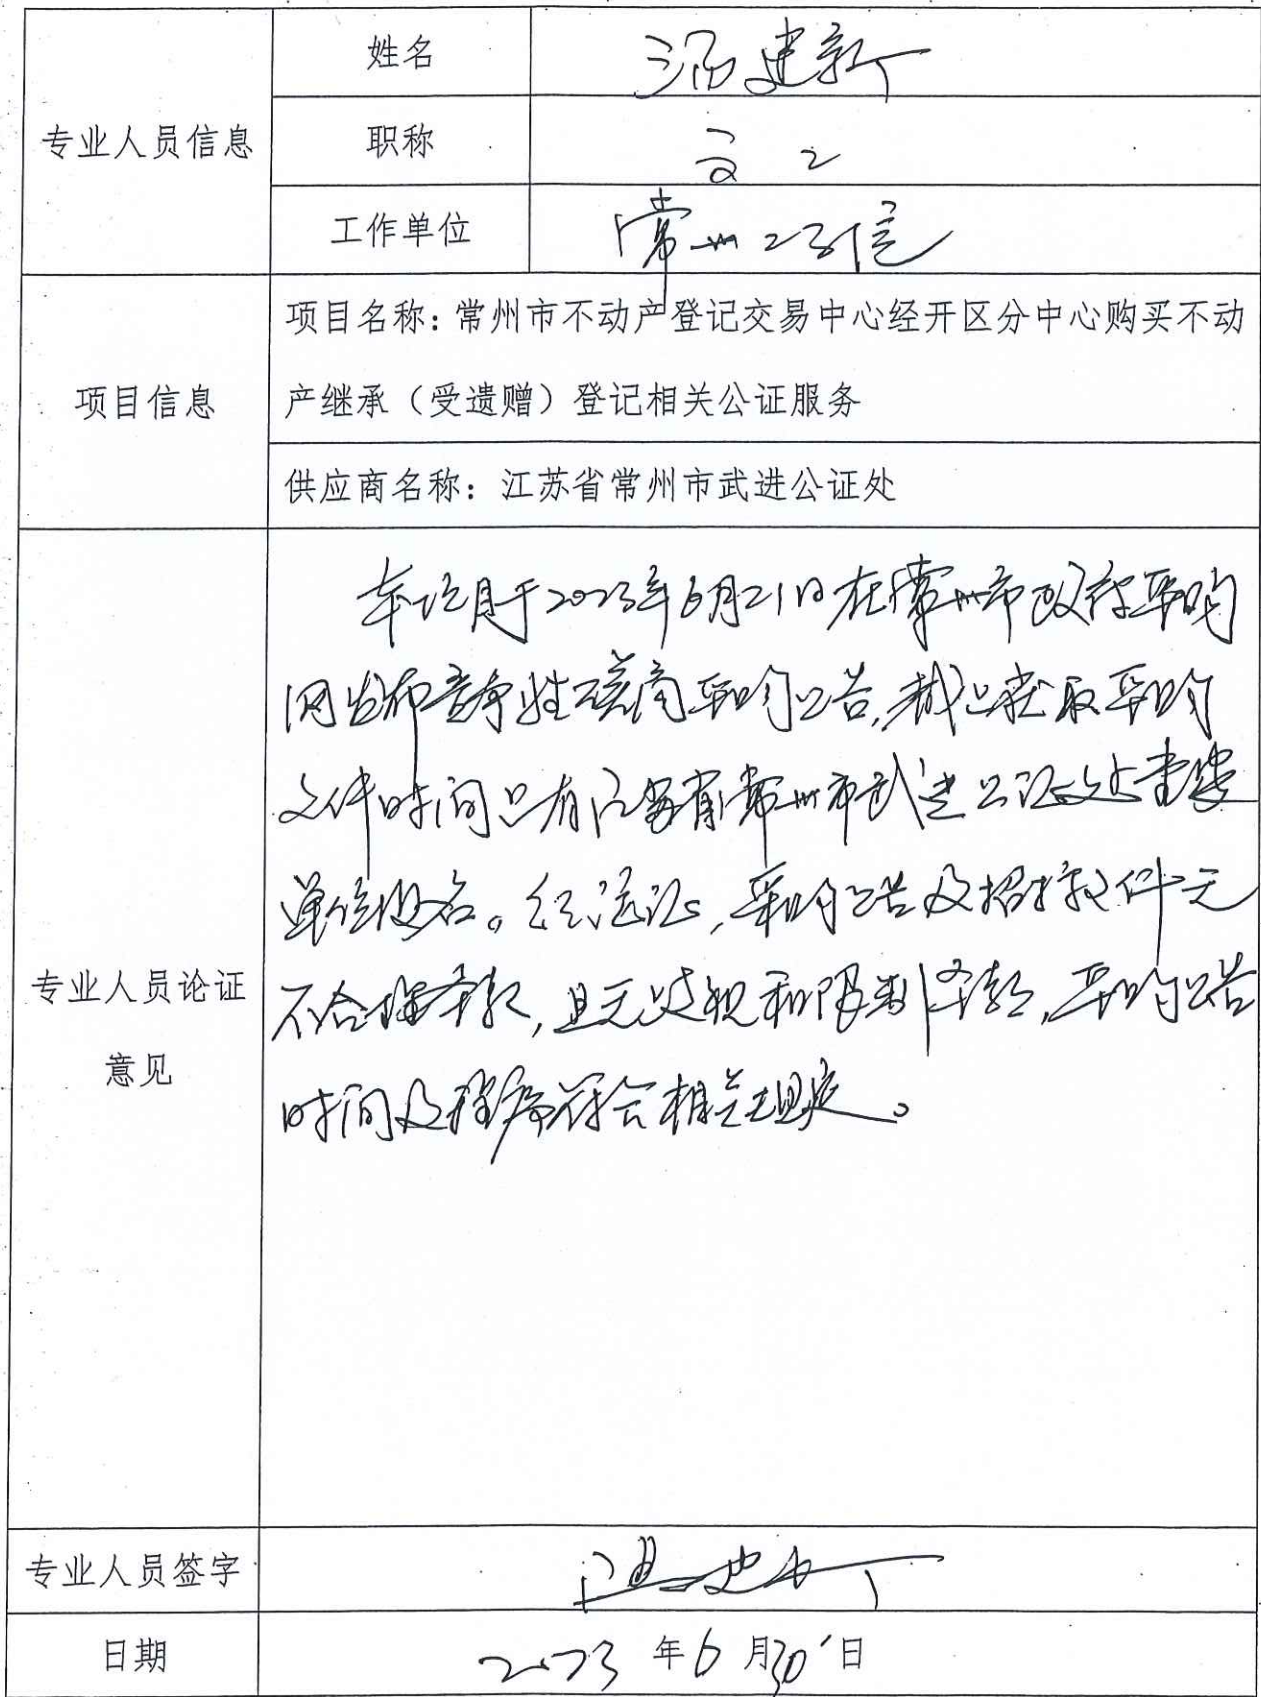 专业人员信息
姓名
建新
职称
高工
工作单位
常州工程信
项目信息
项目名称：常州市不动产登记交易中心经开区分中心购买不动
产继承（受遗赠）登记相关公证服务
供应商名称：江苏省常州市武进公证处
专业人员论证
意见
本项目于2023年6月21日在常州市政府采购
网发布竞争性磋商采购公告，截止获取采购
文件时间只有江苏省常州市武进公证处壹家
单位报名。经论证，采购公告及招标文件无
不合理条款，且无歧视和限制条款，采购公告
时间及程序符合相关规定。
专业人员签字
日期
2023年6月30日